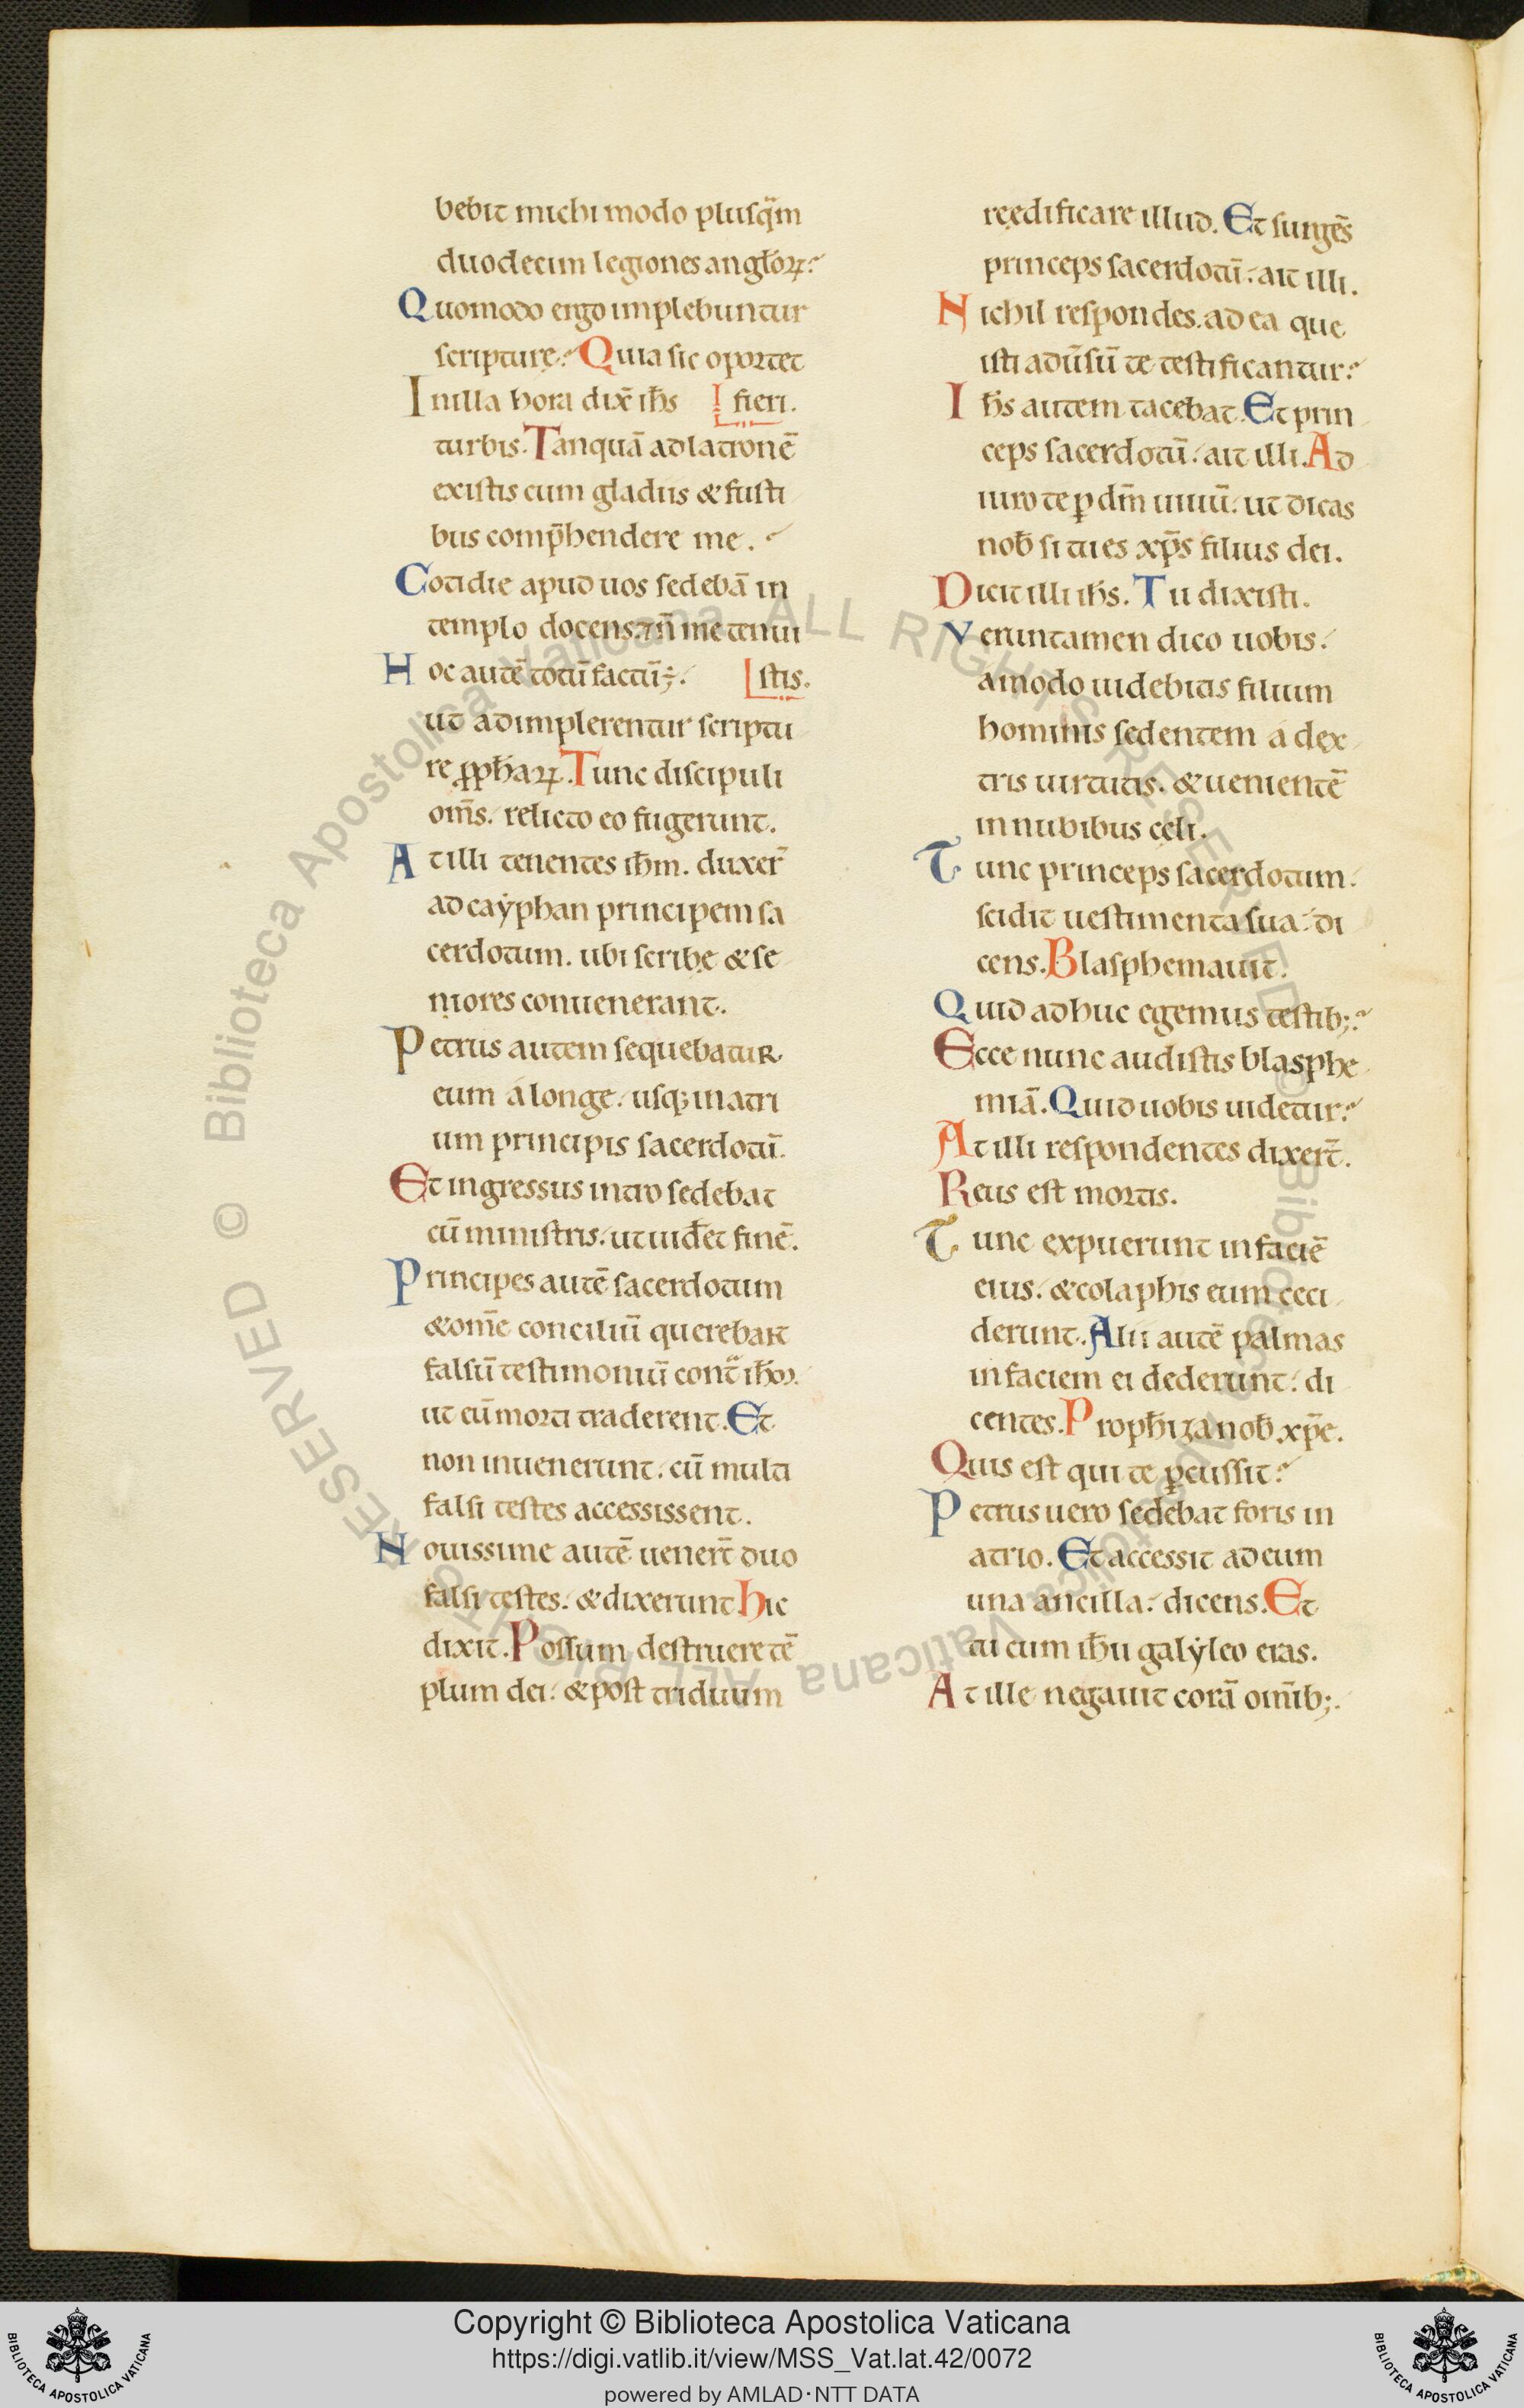 bebit michi modo plusq̃m
duodecim legiones angl̃oꝝ?
Quomodo ergo implebuntur
scripturę? Quia sic oportet
In illa hora dix̃ ih̅s fieri.
turbis. Tanquā ad latronē
existis cum gladiis & fusti
bus comp̄hendere me.
Cotidie apud uos sedebā in
templo docens. ⁊ n̄ me tenui
Hoc autē totū factū ÷. stis.
ut adimplerentur scriptu
re ꝓph̄aꝝ. Tunc discipuli
om̄s. relicto eo fugerunt.
At illi tenentes ih̅m. duxer̄
ad caẏphan principem sa
cerdotum. ubi scribę & se
niores conuenerant.
Petrus autem sequebatur
eum a longe. usq; in atri
um principis sacerdotū.
Et ingressus intro sedebat
cū ministris. ut uid̄et finē.
Principes autē sacerdotum
& om̄e conciliū querebant
falsū testimoniū cont̃ ih̅m.
ut eū morti traderent. Et
non inuenerunt. cū multi
falsi testes accessissent.
Nouissime autē uener̄t duo
falsi testes. & dixerunt. Hic
dixit. Possum destruere tē
plum dei. & post triduum
reędificare illud. Et surgēs
princeps sacerdotū. ait illi.
Nichil respondes. ad ea que
isti adūsū te testificantur?
Ih̅s autem tacebat. Et prin
ceps sacerdotū. ait illi. Ad
iuro te ꝑ dm̄ uiuū. ut dicas
nob̄ si tu es xp̄s filius dei.
Dicit illi ih̅s. Tu dixisti.
Veruntamen dico uobis.
amodo uidebitis filium
hominis sedentem a dex
tris uirtutis. & uenientē
in nubibus cęli.
Tunc princeps sacerdotum.
scidit uestimenta sua. di
cens. Blasphemauit.
Quid adhuc egemus testib;?
Ecce nunc audistis blasphe
miā. Quid uobis uidetur?
At illi respondentes dixer̄t.
Reus est mortis.
Tunc expuerunt in faciē
eius. & colaphis eum ceci
derunt. Alii autē palmas
in faciem ei dederunt. di
centes. Proph̄iza nob̄ xp̄e.
Quis est qui te ꝑcussit?
Petrus uero sedebat foris in
atrio. Et accessit ad eum
una ancilla. dicens. Et
tu cum ih̅u galẏleo eras.
At ille negauit corā om̄ib;.
© Biblioteca Apostolica Vaticana ALL RIGHTS RESERVED
© Biblioteca Apostolica Vaticana ALL RIGHTS RESERVED
Copyright © Biblioteca Apostolica Vaticana
https://digi.vatlib.it/view/MSS_Vat.lat.42/0072
powered by AMLAD·NTT DATA
BIBLIOTECA APOSTOLICA VATICANA
BIBLIOTECA APOSTOLICA VATICANA